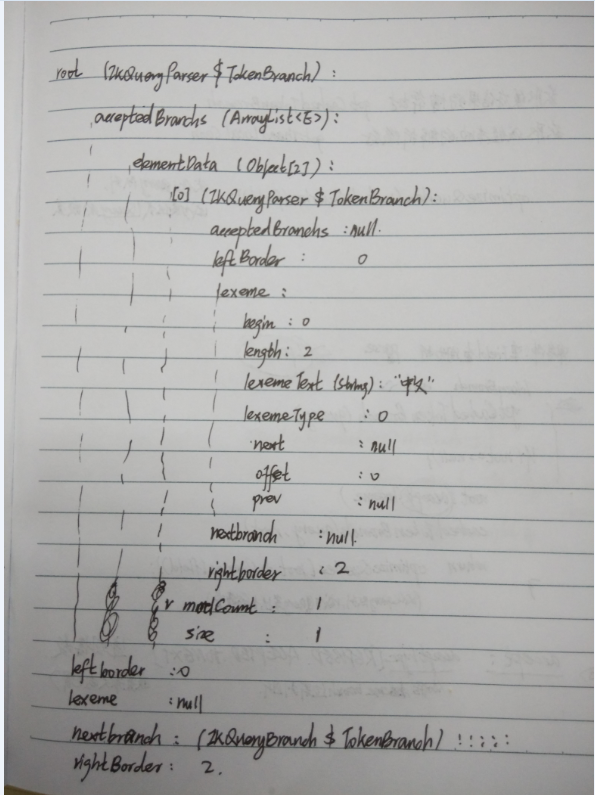 root (IKQueryParser $ TokenBranch) :
acceptedBranchs (ArrayList<E>) :
elementData (Object[2]) :
[0] (IKQueryParser $ TokenBranch) :
acceptedBranchs : null.
leftBorder : 0
lexeme :
begin : 0
length : 2
lexemeText (String) : "中文"
lexemeType : 0
next : null
offset : 0
prev : null
nextbranch : null.
rightborder : 2
modCount : 1
size : 1
leftborder : 0
lexeme : null
nextbranch : (IKQueryBranch $ TokenBranch) !!::
rightBorder : 2.